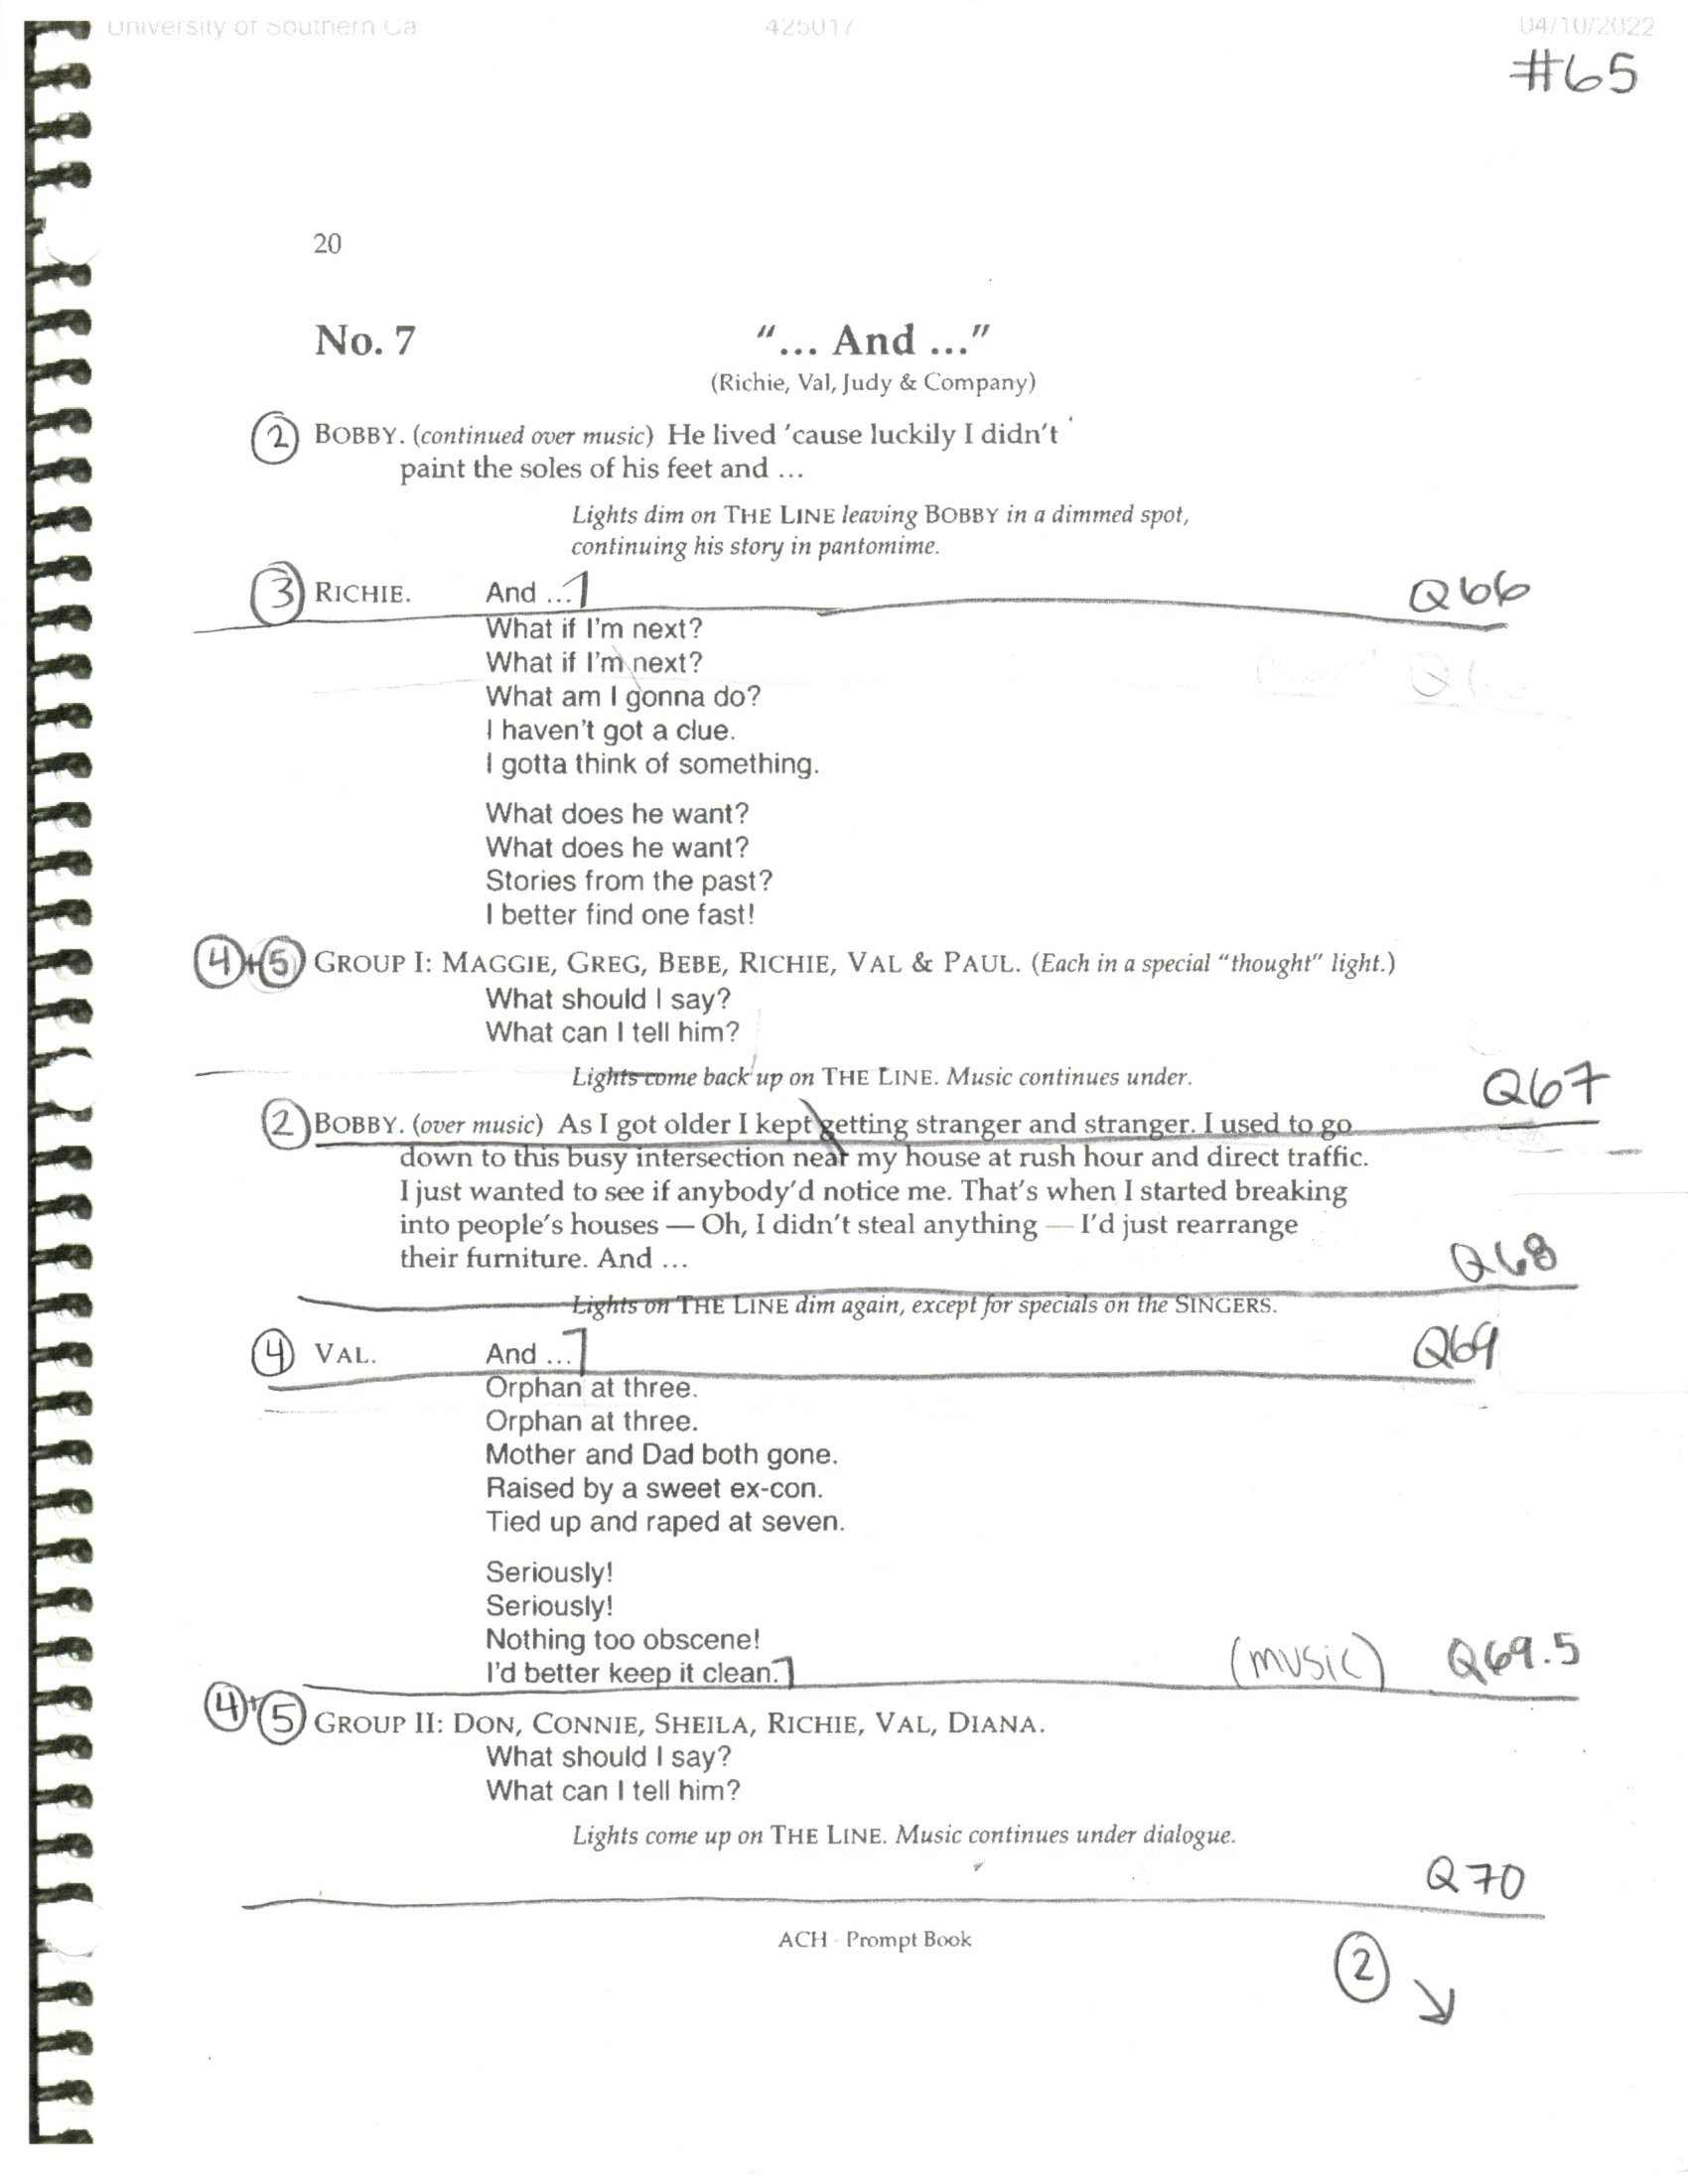 University of Southern Ca 425017 04/10/2022
#65
20
No. 7 "... And ..."
(Richie, Val, Judy & Company)
② BOBBY. (continued over music) He lived 'cause luckily I didn't
paint the soles of his feet and ...
Lights dim on THE LINE leaving BOBBY in a dimmed spot,
continuing his story in pantomime.
③ RICHIE. And ... Q66
What if I'm next?
What if I'm next?
What am I gonna do?
I haven't got a clue.
I gotta think of something.
What does he want?
What does he want?
Stories from the past?
I better find one fast!
④+⑤ GROUP I: MAGGIE, GREG, BEBE, RICHIE, VAL & PAUL. (Each in a special "thought" light.)
What should I say?
What can I tell him?
Lights come back up on THE LINE. Music continues under.
Q67
② BOBBY. (over music) As I got older I kept getting stranger and stranger. I used to go
down to this busy intersection near my house at rush hour and direct traffic.
I just wanted to see if anybody'd notice me. That's when I started breaking
into people's houses — Oh, I didn't steal anything — I'd just rearrange
their furniture. And ... Q68
Lights on THE LINE dim again, except for specials on the SINGERS.
④ VAL. And ... Q69
Orphan at three.
Orphan at three.
Mother and Dad both gone.
Raised by a sweet ex-con.
Tied up and raped at seven.
Seriously!
Seriously!
Nothing too obscene!
I'd better keep it clean. (music) Q69.5
④+⑤ GROUP II: DON, CONNIE, SHEILA, RICHIE, VAL, DIANA.
What should I say?
What can I tell him?
Lights come up on THE LINE. Music continues under dialogue.
Q70
ACH - Prompt Book
② ↘